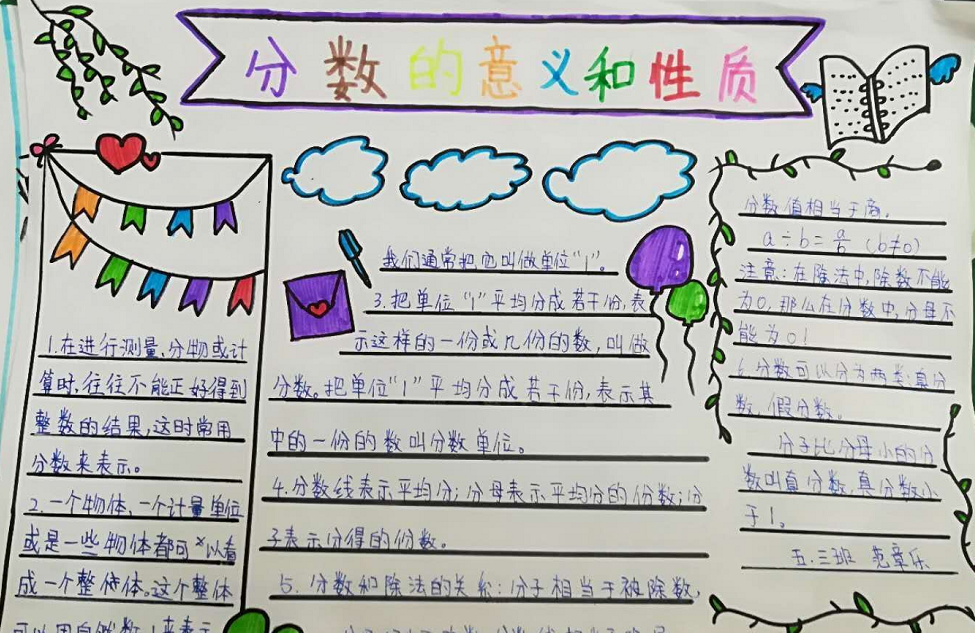 分数的意义和性质
1.在进行测量、分物或计
算时,往往不能正好得到
整数的结果,这时常用
分数来表示。
2.一个物体、一个计量单位
或是一些物体都可以看
成一个整体。这个整体
可以用自然数1来表示
我们通常把它叫做单位“1”。
3.把单位“1”平均分成若干份,表
示这样的一份或几份的数,叫做
分数。把单位“1”平均分成若干份,表示其
中的一份的数叫分数单位。
4.分数线表示平均分;分母表示平均分的份数;分
子表示分得的份数。
5.分数和除法的关系:分子相当于被除数,
分数值相当于商。
a÷b=a/b (b≠0)
注意:在除法中,除数不能
为0,那么在分数中,分母不
能为0!
6.分数可以分为两类:真分
数、假分数。
分子比分母小的分
数叫真分数,真分数小
于1。
五.三班 范章乐